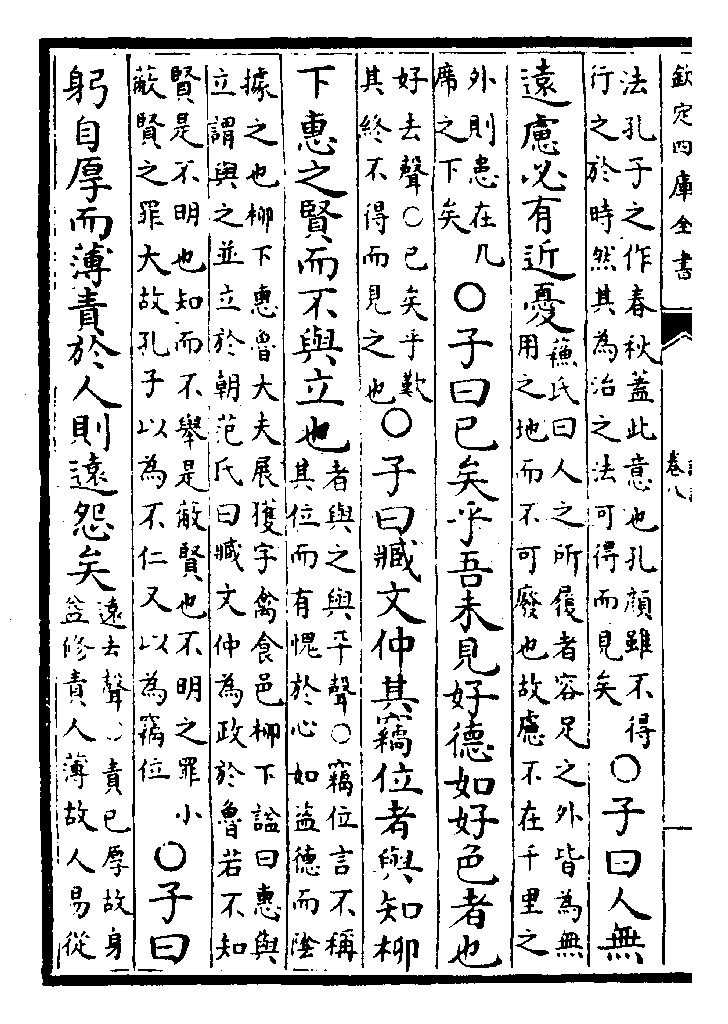 欽定四庫全書
卷八
法孔子之作春秋蓋此意也孔顔雖不得
行之於時然其為治之法可得而見矣
○子曰人無
遠慮必有近憂
蘇氏曰人之所履者容足之外皆為無
用之地而不可廢也故慮不在千里之
外則患在几
席之下矣
○子曰已矣乎吾未見好德如好色者也
好去聲○已矣乎歎
其終不得而見之也
○子曰臧文仲其竊位者與知柳
下惠之賢而不與立也
者與之與平聲○竊位言不稱
其位而有愧於心如盜德而陰
據之也柳下惠魯大夫展獲字禽食邑柳下諡曰惠與
立謂與之並立於朝范氏曰臧文仲為政於魯若不知
賢是不明也知而不舉是蔽賢也不明之罪小
蔽賢之罪大故孔子以為不仁又以為竊位
○子曰
躬自厚而薄責於人則遠怨矣
遠去聲○責已厚故身
益修責人薄故人易從